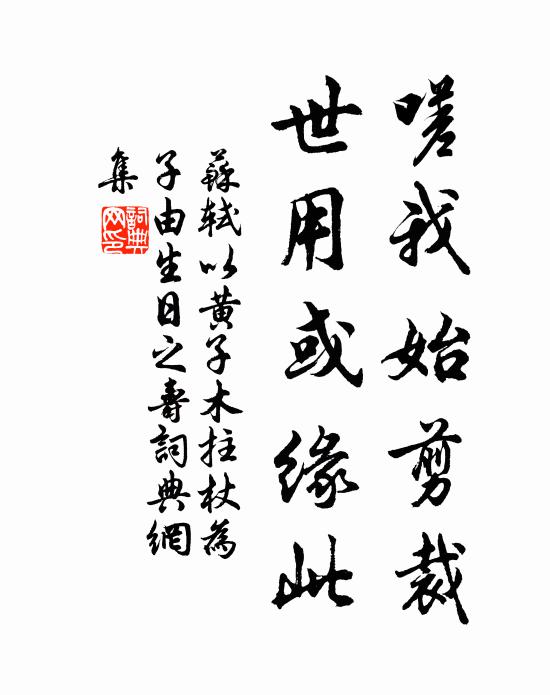 嗟我始剪裁
世用或緣此
蘇軾以黃子木拄杖為
子由生日之壽詞典網
集
詞典
网印